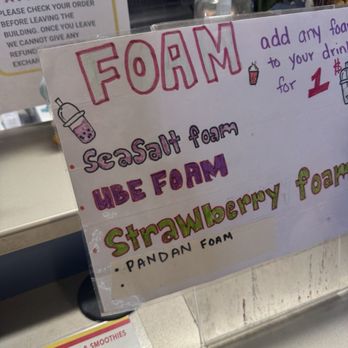 PLEASE CHECK YOUR ORDER
BEFORE LEAVING THE
BUILDING. ONCE YOU LEAVE
WE CANNOT GIVE ANY
REFUND
EXCHAN
FOAM
add any foam
to your drink
for 1$
SeaSalt foam
UBE FOAM
Strawberry foam
• PANDAN FOAM
•
& SMOOTHIES